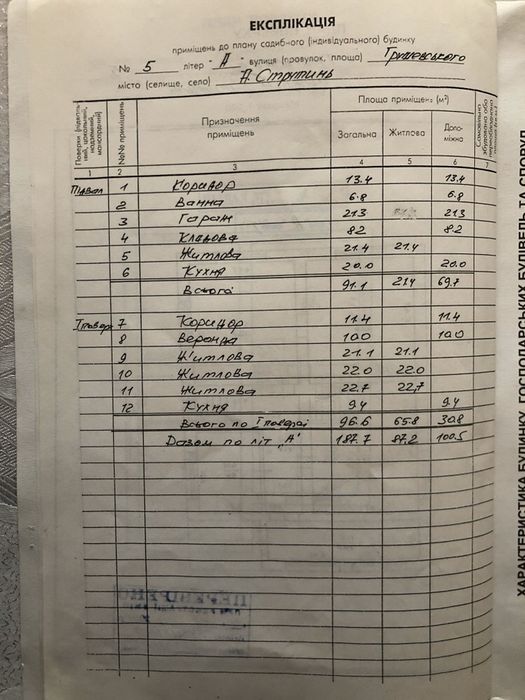 ЕКСПЛІКАЦІЯ
приміщень до плану садибного (індивідуального) будинку
№ 5 літер - А - вулиця (провулок, площа) Грушевського
місто (селище, село) Д. Струтинь
Поверхи (підвальний, цокольний, надземний, мансардний) №№ приміщень Призначення приміщень Площа приміщень (м²)
Загальна Житлова Допоміжна
1 2 3 4 5 6 7
Підвал 1 Коридор 13.4 13.4
2 Ванна 6.8 6.8
3 Гараж 21.3 21.3
4 Кладова 8.2 8.2
5 Житлова 21.4 21.4
6 Кухня 20.0 20.0
Всього 91.1 21.4 69.7
І поверх 7 Коридор 11.4 11.4
8 Веронда 10.0 10.0
9 Житлова 21.1 21.1
10 Житлова 22.0 22.0
11 Житлова 22.7 22.7
12 Кухня 9.4 9.4
Всього по І поверсі 96.6 65.8 30.8
Разом по літ „А" 187.7 87.2 100.5
ХАРАКТЕРИСТИКА БУДИНКУ, ГОСПОДАРСЬКИХ БУДІВЕЛЬ ТА СПОРУД